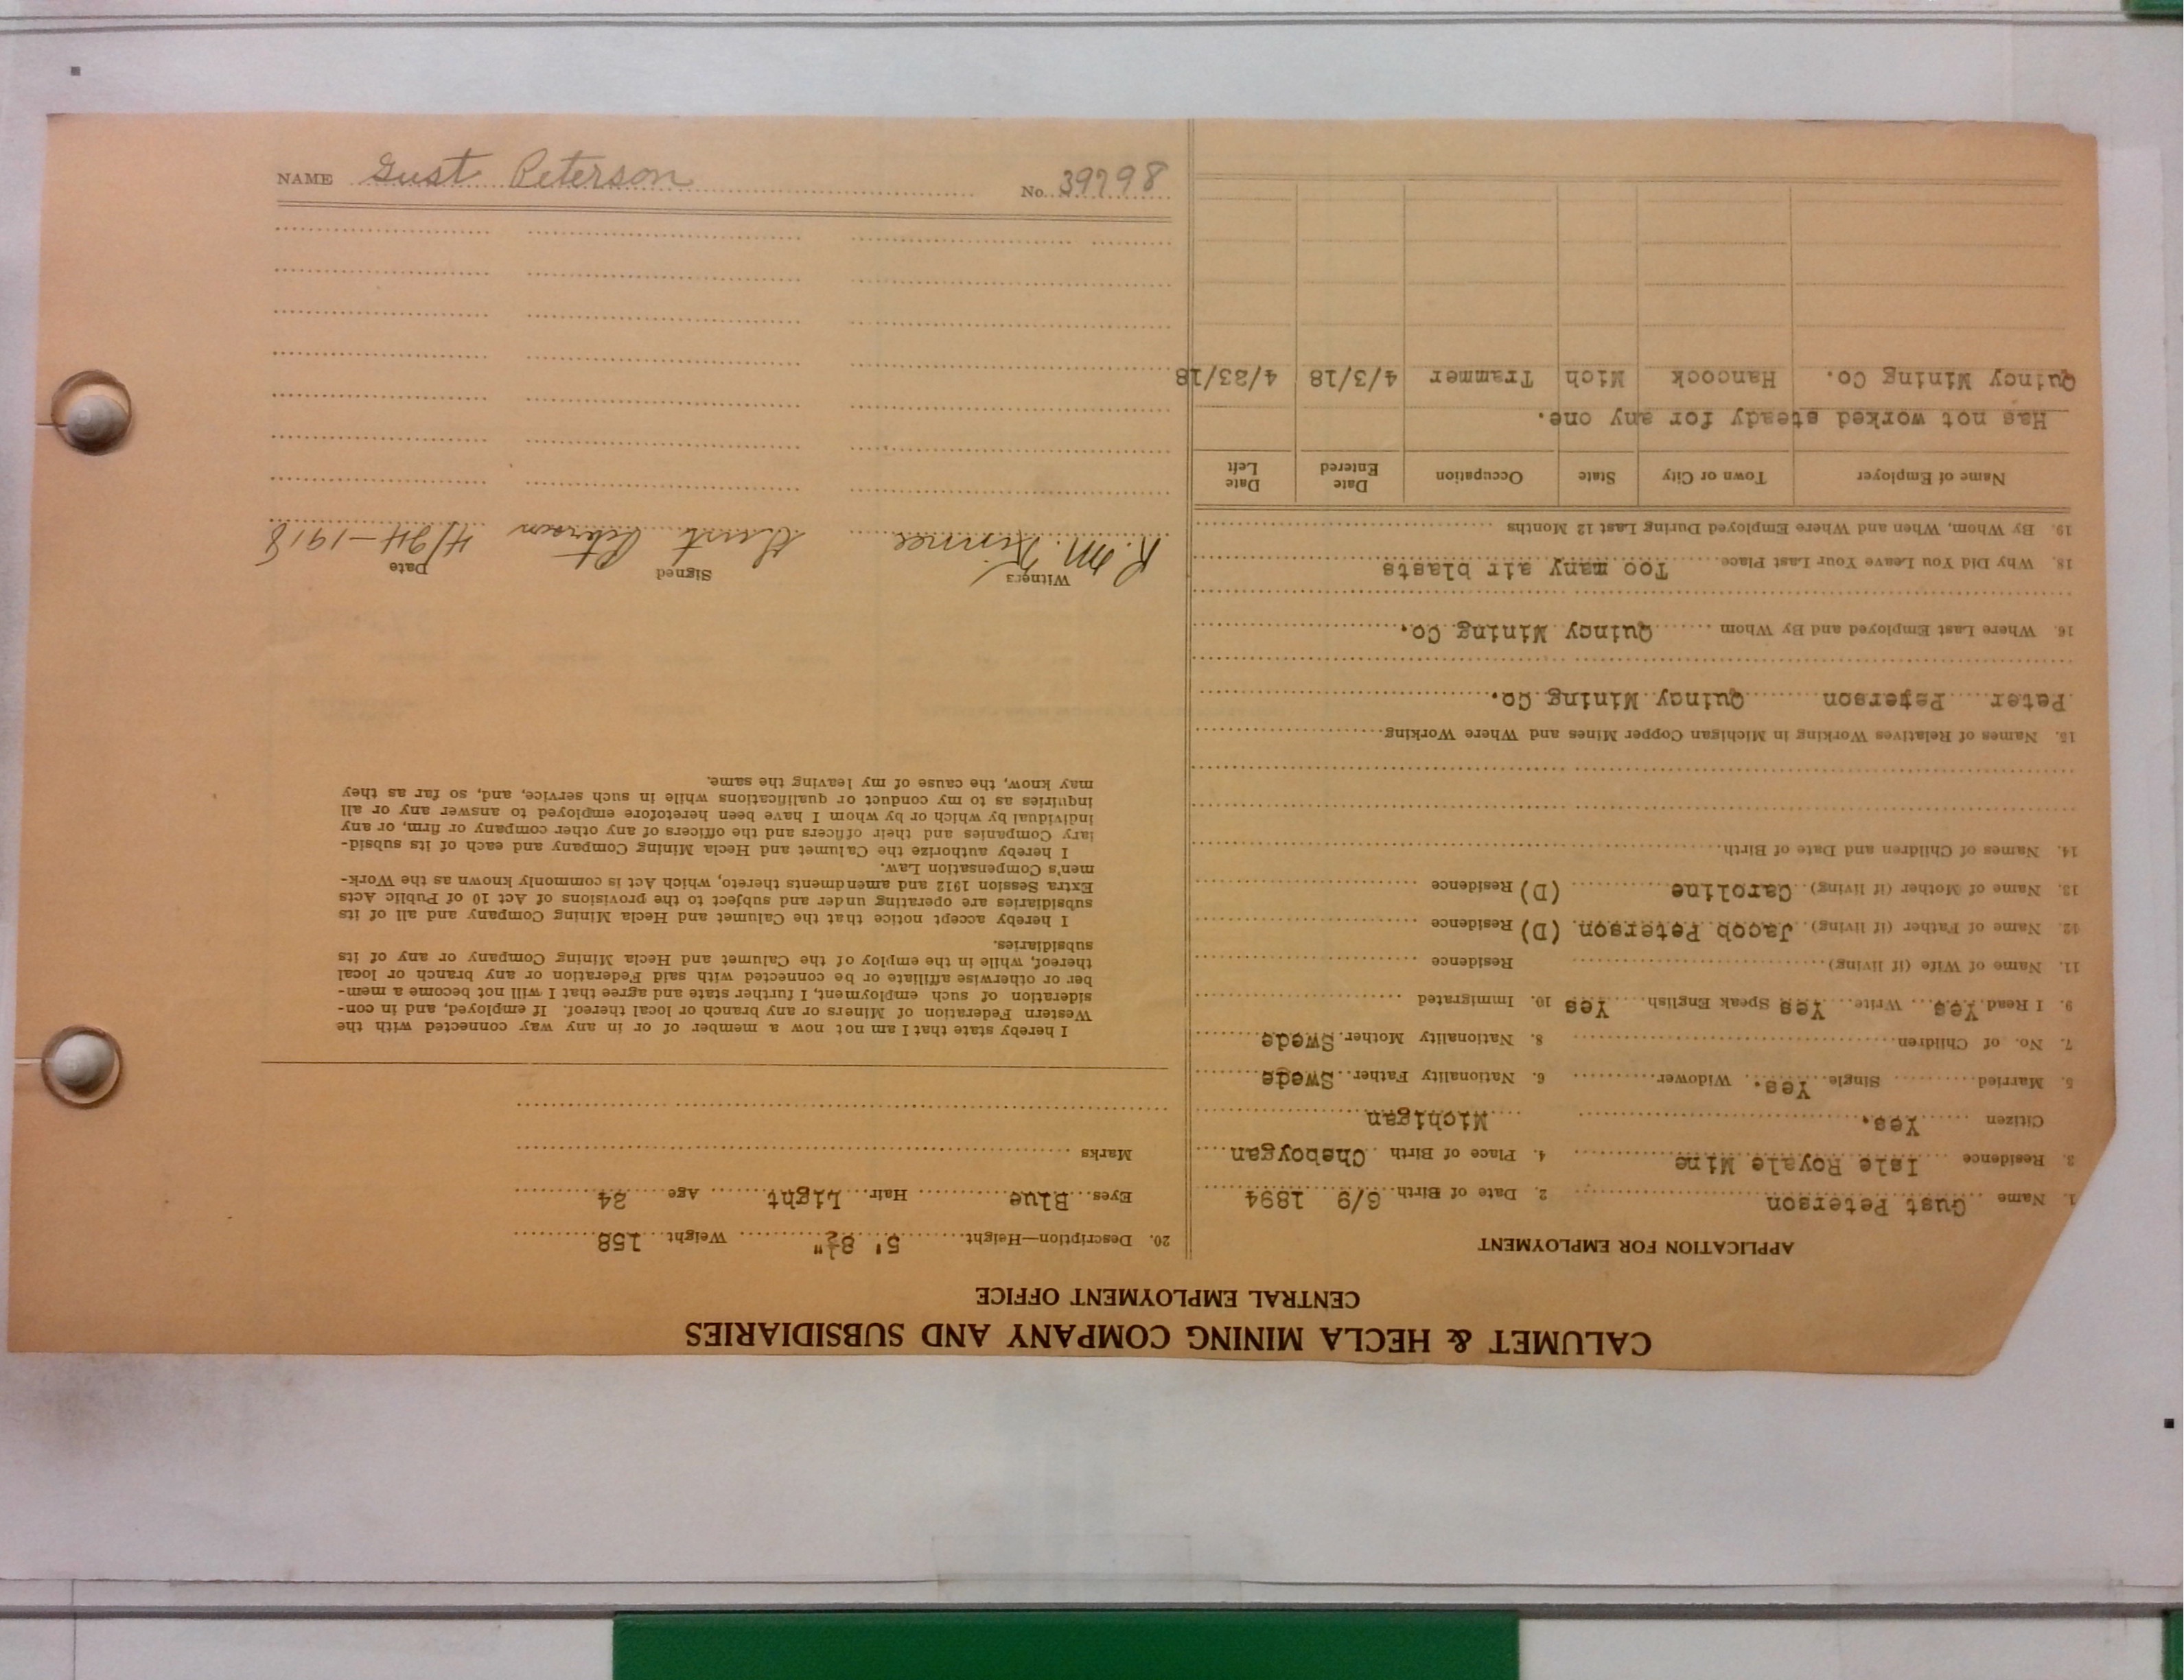 CALUMET & HECLA MINING COMPANY AND SUBSIDIARIES
CENTRAL EMPLOYMENT OFFICE
APPLICATION FOR EMPLOYMENT
1. Name Gust Peterson 2. Date of Birth 6/9 1894
3. Residence Isle Royale Mine 4. Place of Birth Cheboygan
Citizen Yes. Michigan
5. Married Single Yes. Widower 6. Nationality Father Swede
7. No. of Children 8. Nationality Mother Swede
9. I Read Yes Write Yes Speak English Yes 10. Immigrated
11. Name of Wife (if living) Residence
12. Name of Father (if living) Jacob Peterson (D) Residence
13. Name of Mother (if living) Caroline (D) Residence
14. Names of Children and Date of Birth
15. Names of Relatives Working in Michigan Copper Mines and Where Working
Peter Peterson Quincy Mining Co.
16. Where Last Employed and By Whom Quincy Mining Co.
18. Why Did You Leave Your Last Place Too many air blasts
19. By Whom, When and Where Employed During Last 12 Months
Name of Employer Town or City State Occupation Date Entered Date Left
Has not worked steady for any one.
Quincy Mining Co. Hancock Mich Trammer 4/3/18 4/23/18
20. Description—Height 5' 8½" Weight 158
Eyes Blue Hair Light Age 24
Marks
I hereby state that I am not now a member of or in any way connected with the
Western Federation of Miners or any branch or local thereof. If employed, and in con-
sideration of such employment, I further state and agree that I will not become a mem-
ber or otherwise affiliate or be connected with said Federation or any branch or local
thereof, while in the employ of the Calumet and Hecla Mining Company or any of its
subsidiaries.
I hereby accept notice that the Calumet and Hecla Mining Company and all of its
subsidiaries are operating under and subject to the provisions of Act 10 of Public Acts
Extra Session 1912 and amendments thereto, which Act is commonly known as the Work-
men's Compensation Law.
I hereby authorize the Calumet and Hecla Mining Company and each of its subsid-
iary Companies and their officers and the officers of any other company or firm, or any
individual by which or by whom I have been heretofore employed to answer any or all
inquiries as to my conduct or qualifications while in such service, and, so far as they
may know, the cause of my leaving the same.
Witness Signed Date
R. M. Gust Peterson 4/24-1918
NAME Gust Peterson No. 39798